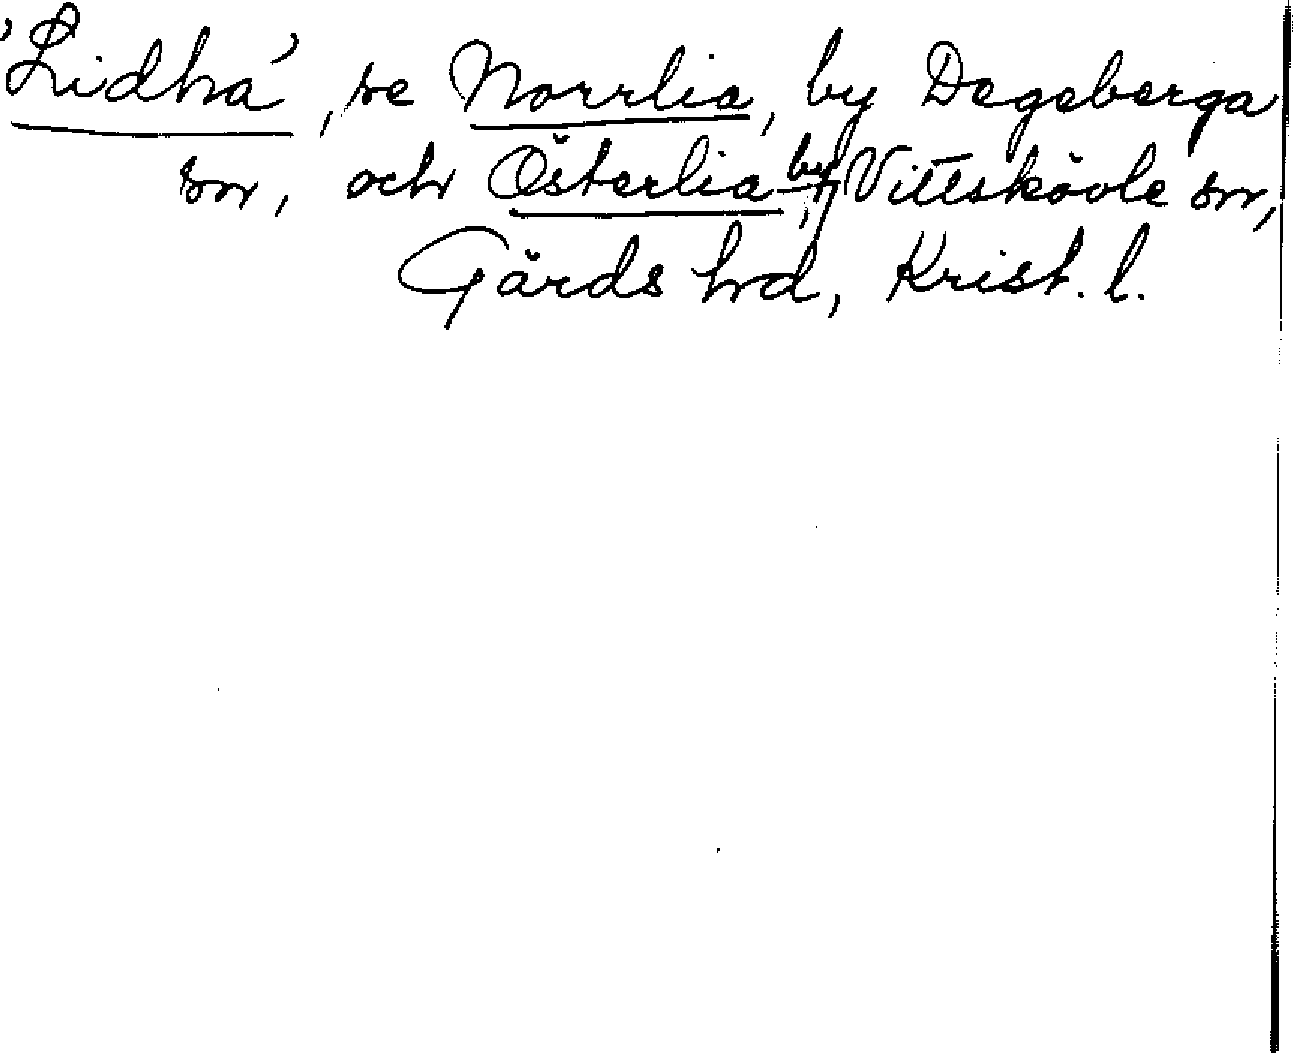 'Lidha', se Norrlia, by Degeberga
sn, och Österlia, by, Vittskövle sn,
Gärds hd, Krist. l.